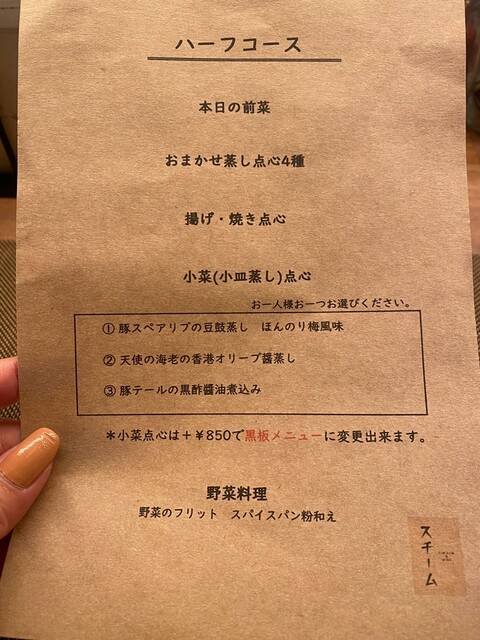 ハーフコース
本日の前菜
おまかせ蒸し点心4種
揚げ・焼き点心
小菜(小皿蒸し)点心
お一人様お一つお選びください。
① 豚スペアリブの豆鼓蒸し　ほんのり梅風味
② 天使の海老の香港オリーブ醤蒸し
③ 豚テールの黒酢醤油煮込み
＊小菜点心は＋￥850で黒板メニューに変更出来ます。
野菜料理
野菜のフリット　スパイスパン粉和え
スチーム